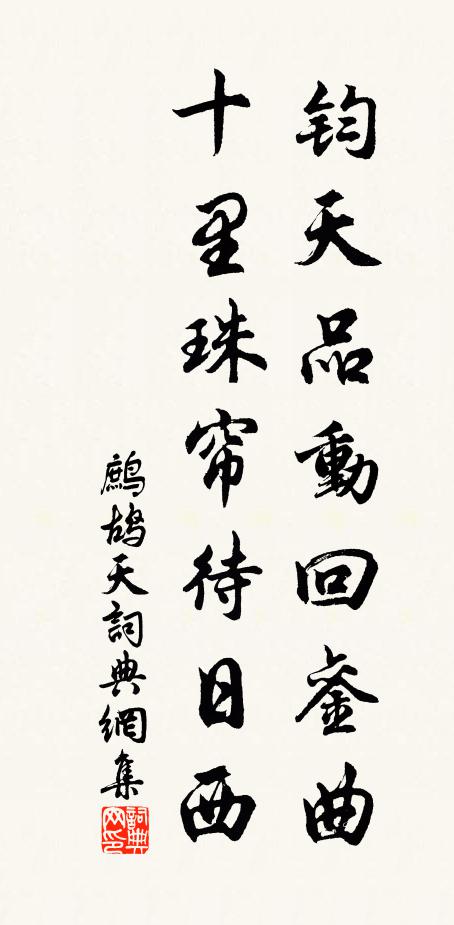 钧天品動回銮曲
十里珠帘待日西
鷓鴣天詞典網集
詞典
网印